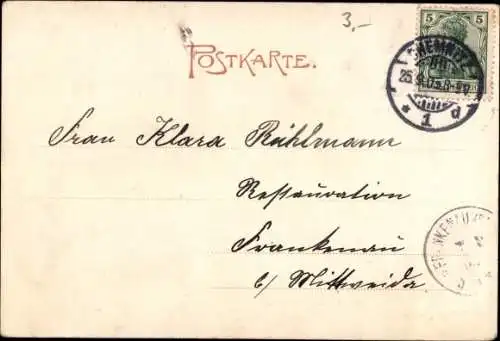 3,-
POSTKARTE.
5 5
CHEMNITZ
1 d
Frau Klara Rühlmann
Restauration
Frankenau
b/ Mittweida